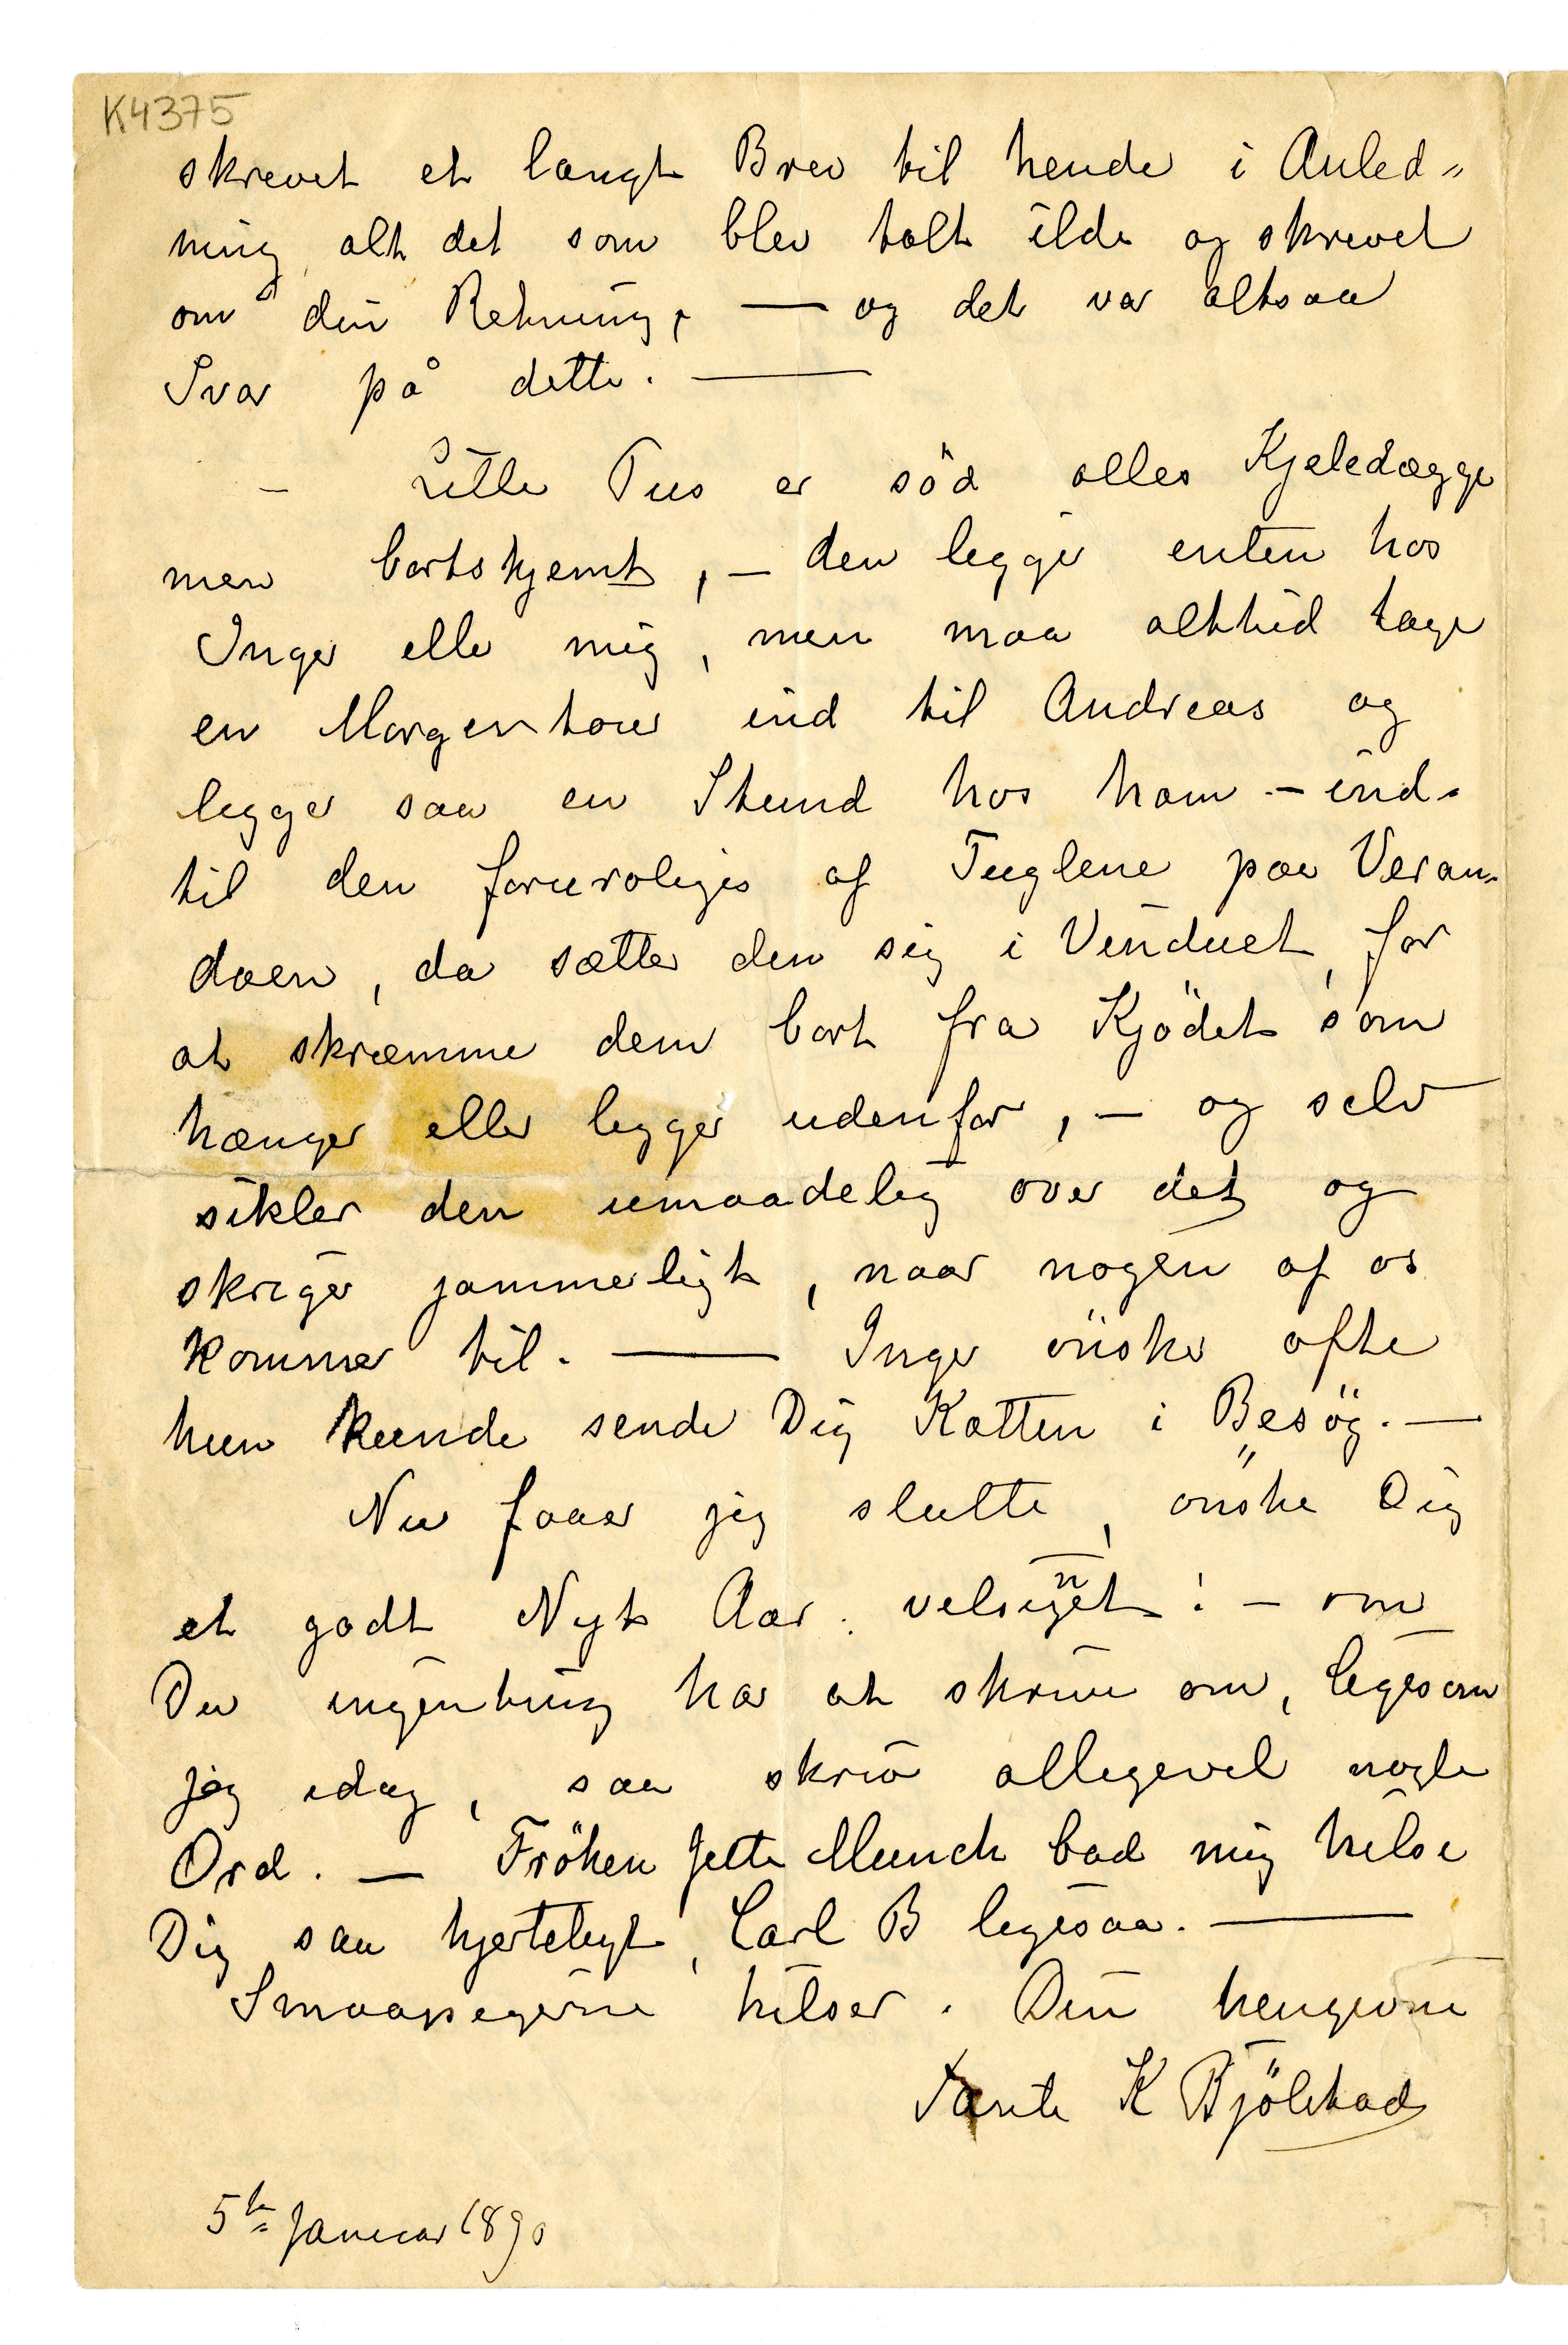 K4375
skrevet et langt Brev til hende i Anled„
ning alt det som blev talt ilde og skrevet
om din Retning, — og det var altsaa
Svar på dette. —
– Lille Pus er söd alles Kjeledægge
men bortskjemt, – den legger enten hos
Inger eller mig, men maa alttid tage
en Morgentour ind til Andreas og
legger saa en Stund hos ham – ind-
til den foruroliges af Fuglene paa Veran-
daen, da sætter den sig i Vinduet, for
at skræmme dem bort fra Kjödet som
hænger eller legger udenfor, – og selv
sikler den umaadelig over det og
skriger jammerligt, naar nogen af os
kommer til. — Inger önsker ofte
hun kunde sende Dig Katten i Besög. —
Nu faaer jeg slutte, önske Dig
et godt Nyt Aar. velsignet! – om
Du ingenting har at skrive om, ligesom
jeg idag, saa skriv alligevel nogle
Ord. — Fröken Jette Munch bad mig hilse
Dig saa hjerteligt, Carl B ligesaa. —
Smaapigerne hilser. Din hengivne
Tante K Bjölstad
5te Januar 1890